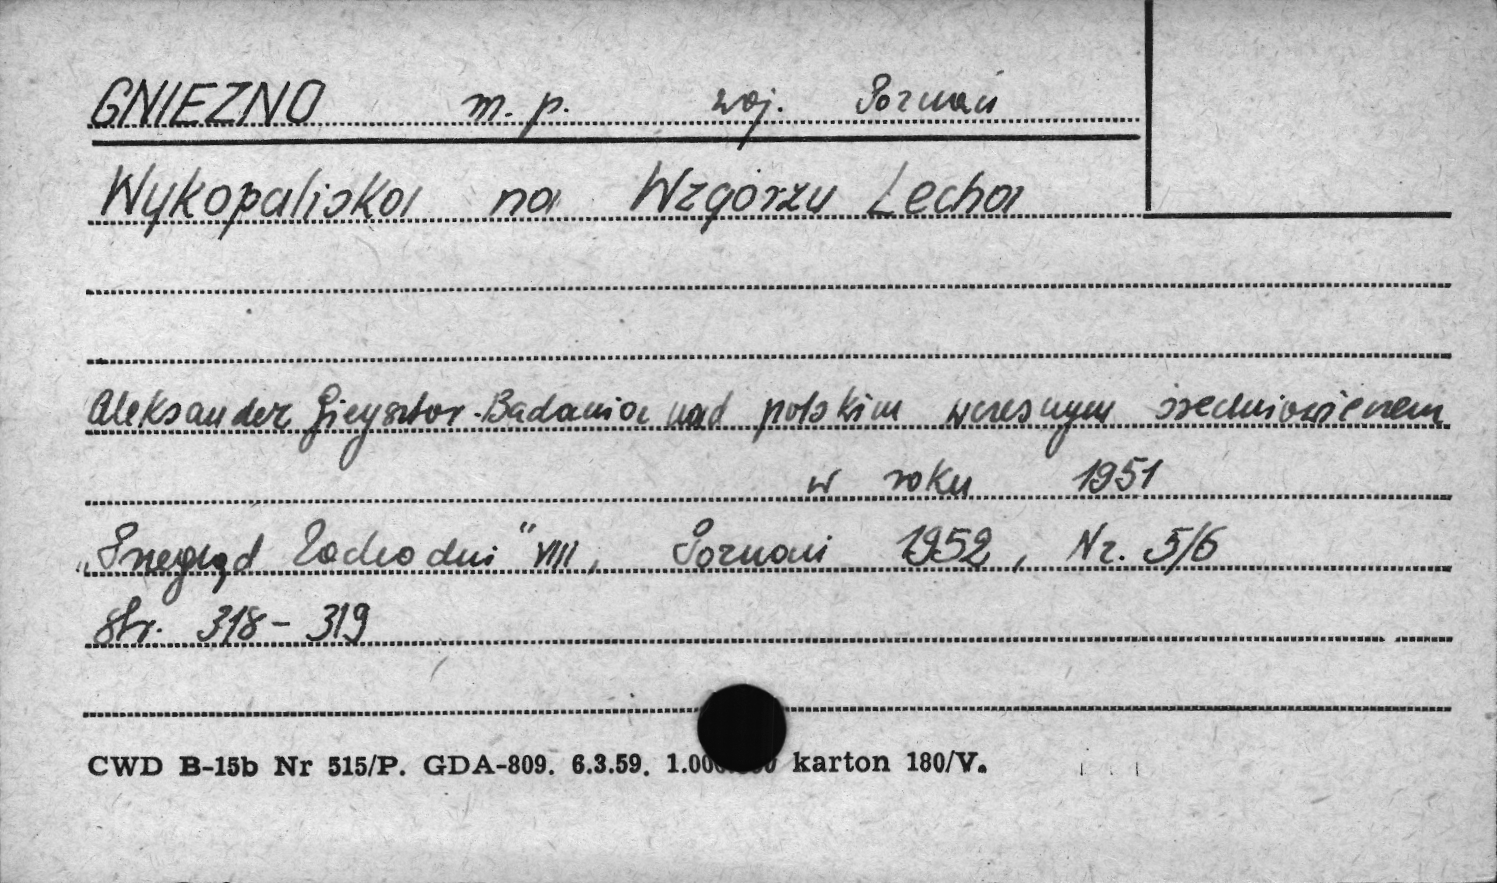 GNIEZNO m. p. woj. Poznań
Wykopaliska na Wzgórzu Lecha
Aleksander Gieysztor - Badania nad polskim wczesnym średniowieczem
w roku 1951
"Przegląd Zachodni" VIII, Poznań 1952, Nr. 5/6
str. 318-319
CWD B-15b Nr 515/P. GDA-809. 6.3.59. karton 180/V.